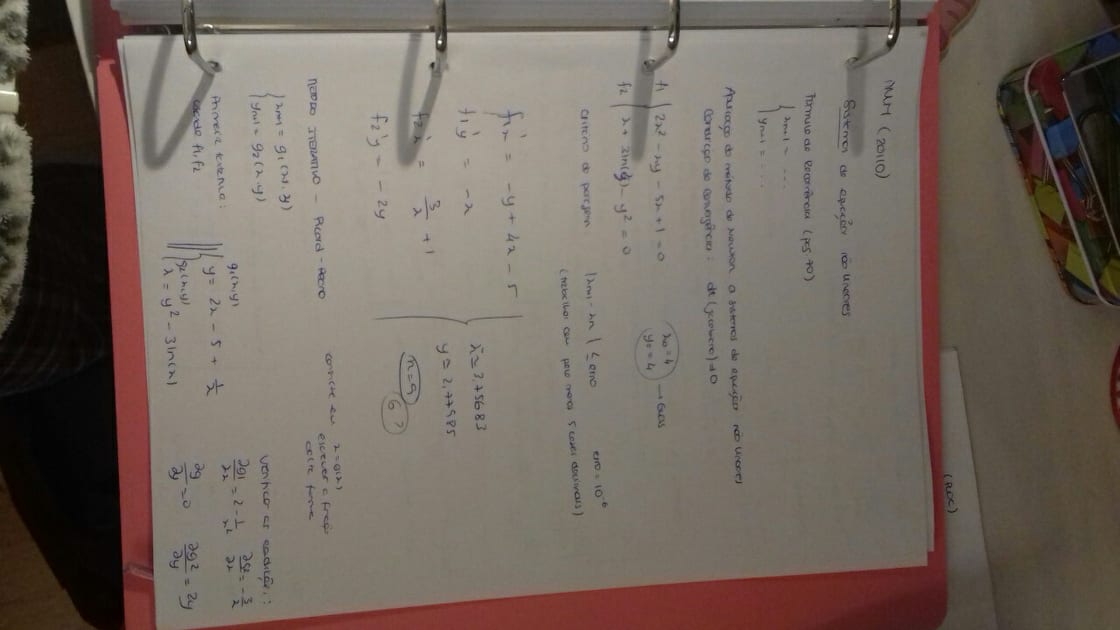 (PLOC)
MM (20110)
Sistemas de equação não lineares
Formula de Recorrência (pag. 70)
xn+1 = ....
yn+1 = ....
Aplicação do método de Newton a sistemas de equação não lineares
Condição de convergência: det (jacobiano) ≠ 0
f1 { 2x² - xy - 5x + 1 = 0
f2 { x + 3ln(x) - y² = 0
x0 = 4
y0 = 4
Criterio de paragem: |xn+1 - xn| ≤ erro erro = 10⁻⁶
(trabalhar com pelo menos 5 casas decimais)
f1'x = -y + 4x - 5
f1'y = -x
f2'x = 3/x + 1
f2'y = -2y
x ≃ 3,75683
y ≃ 2,77985
n = 9
6 ?
METODO ITERATIVO - Picard-Peano
consiste em x = g(x)
escrever a
desta forma
xn+1 = g1(x, y)
yn+1 = g2(x, y)
Primeira tentativa:
usando f1, f2
g1(x,y)
y = 2x - 5 + 1/x
g2(x,y)
x = y² - 3ln(x)
Verifico as condições:
∂g1/∂x = 2 - 1/x² ∂g2/∂x = -3/x
∂g/∂y = 0 ∂g2/∂y = 2y